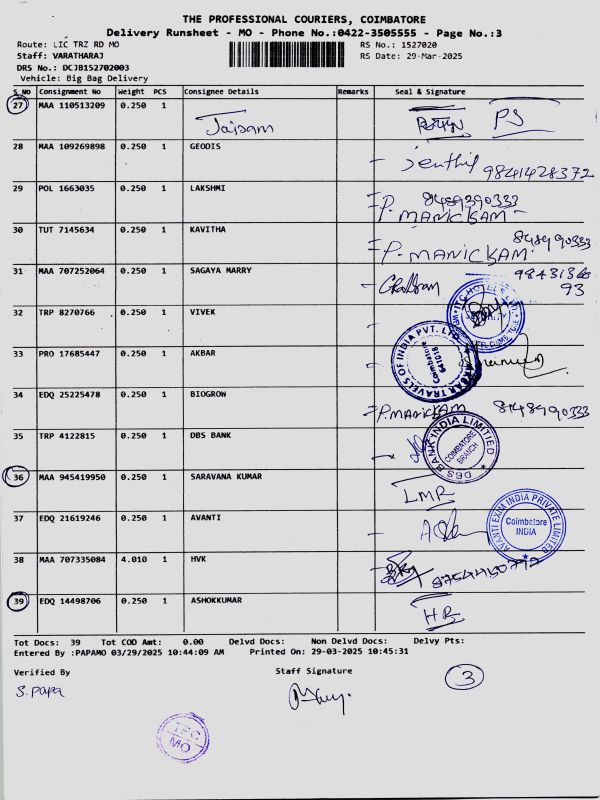 THE PROFESSIONAL COURIERS, COIMBATORE
Delivery Runsheet - MO - Phone No.:0422-3505555 - Page No.:3
Route: LIC TRZ RD MO
RS No.: 1527020
Staff: VARATHARAJ
RS Date: 29-Mar-2025
DRS No.: DCJB152702003
Vehicle: Big Bag Delivery
S No Consignment No Weight PCS Consignee Details Remarks Seal & Signature
27 MAA 110513209 0.250 1 Jaisam PS
28 MAA 109269898 0.250 1 GEODIS Senthil 9841428372
29 POL 1663035 0.250 1 LAKSHMI 8489390333
P. MANICKAM
30 TUT 7145634 0.250 1 KAVITHA 8489990333
P. MANICKAM
31 MAA 707252064 0.250 1 SAGAYA MARRY 98431368
93
32 TRP 8270766 0.250 1 VIVEK
33 PRO 17685447 0.250 1 AKBAR AKBAR TRAVELS OF INDIA PVT. LTD. Coimbatore 641018
34 EDQ 25225478 0.250 1 BIOGROW P. MANICKAM 8148990333
35 TRP 4122815 0.250 1 DBS BANK DBS BANK INDIA LIMITED COIMBATORE BRANCH
36 MAA 945419950 0.250 1 SARAVANA KUMAR LMR
37 EDQ 21619246 0.250 1 AVANTI AVANTI EXIM INDIA PRIVATE LIMITED Coimbatore INDIA
38 MAA 707335084 4.010 1 HVK
39 EDQ 14498706 0.250 1 ASHOKKUMAR HR
Tot Docs: 39 Tot COD Amt: 0.00 Delvd Docs: Non Delvd Docs: Delvy Pts:
Entered By :PAPAMO 03/29/2025 10:44:09 AM Printed On: 29-03-2025 10:45:31
Verified By
Staff Signature
3
S. Papa
TPC
MO